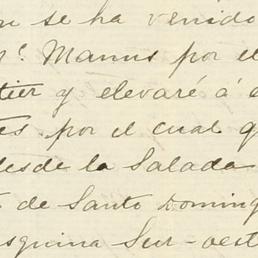 n se ha venido
r. Manns por el
tier y elevaré á
es por el cual q
desde la Salada
de Santo Doming
squina Sur-oest